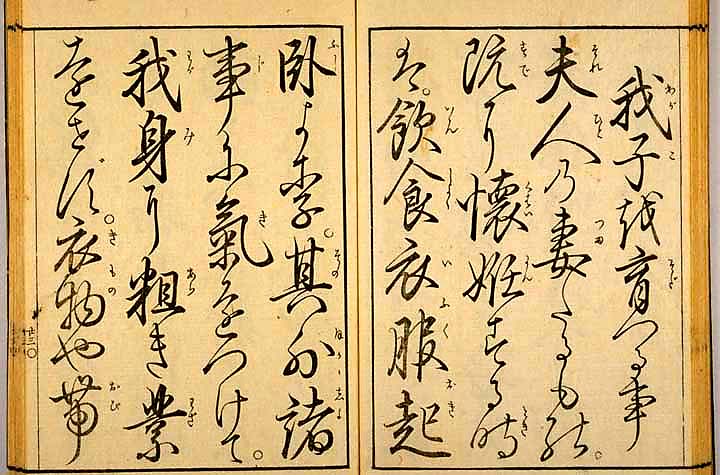 我子を育つる事
夫人の妻たるもの。
既に懐妊する時
は。飲食衣服起
臥。其外諸
事に氣をつけて。
我身に粗き業
をせず。衣物や帯